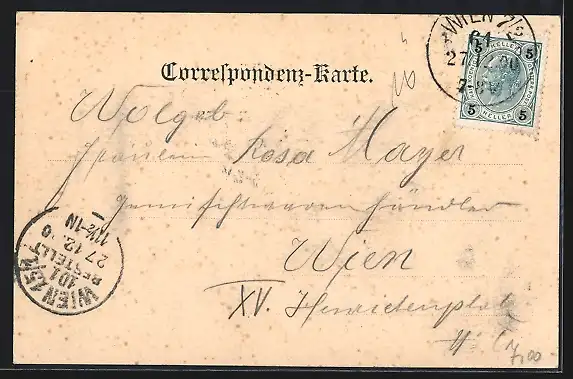 WIEN 7/2
61
27
5 HELLER 5
5 HELLER 5
Correspondenz-Karte.
Wolgeb.
Fräulein Rosa Mayer
Gemischtwarenhändler
Wien
XV. Henriettenplatz
7,00
WIEN 15/1
101
BESTELLT
27 12 00
11½-1N